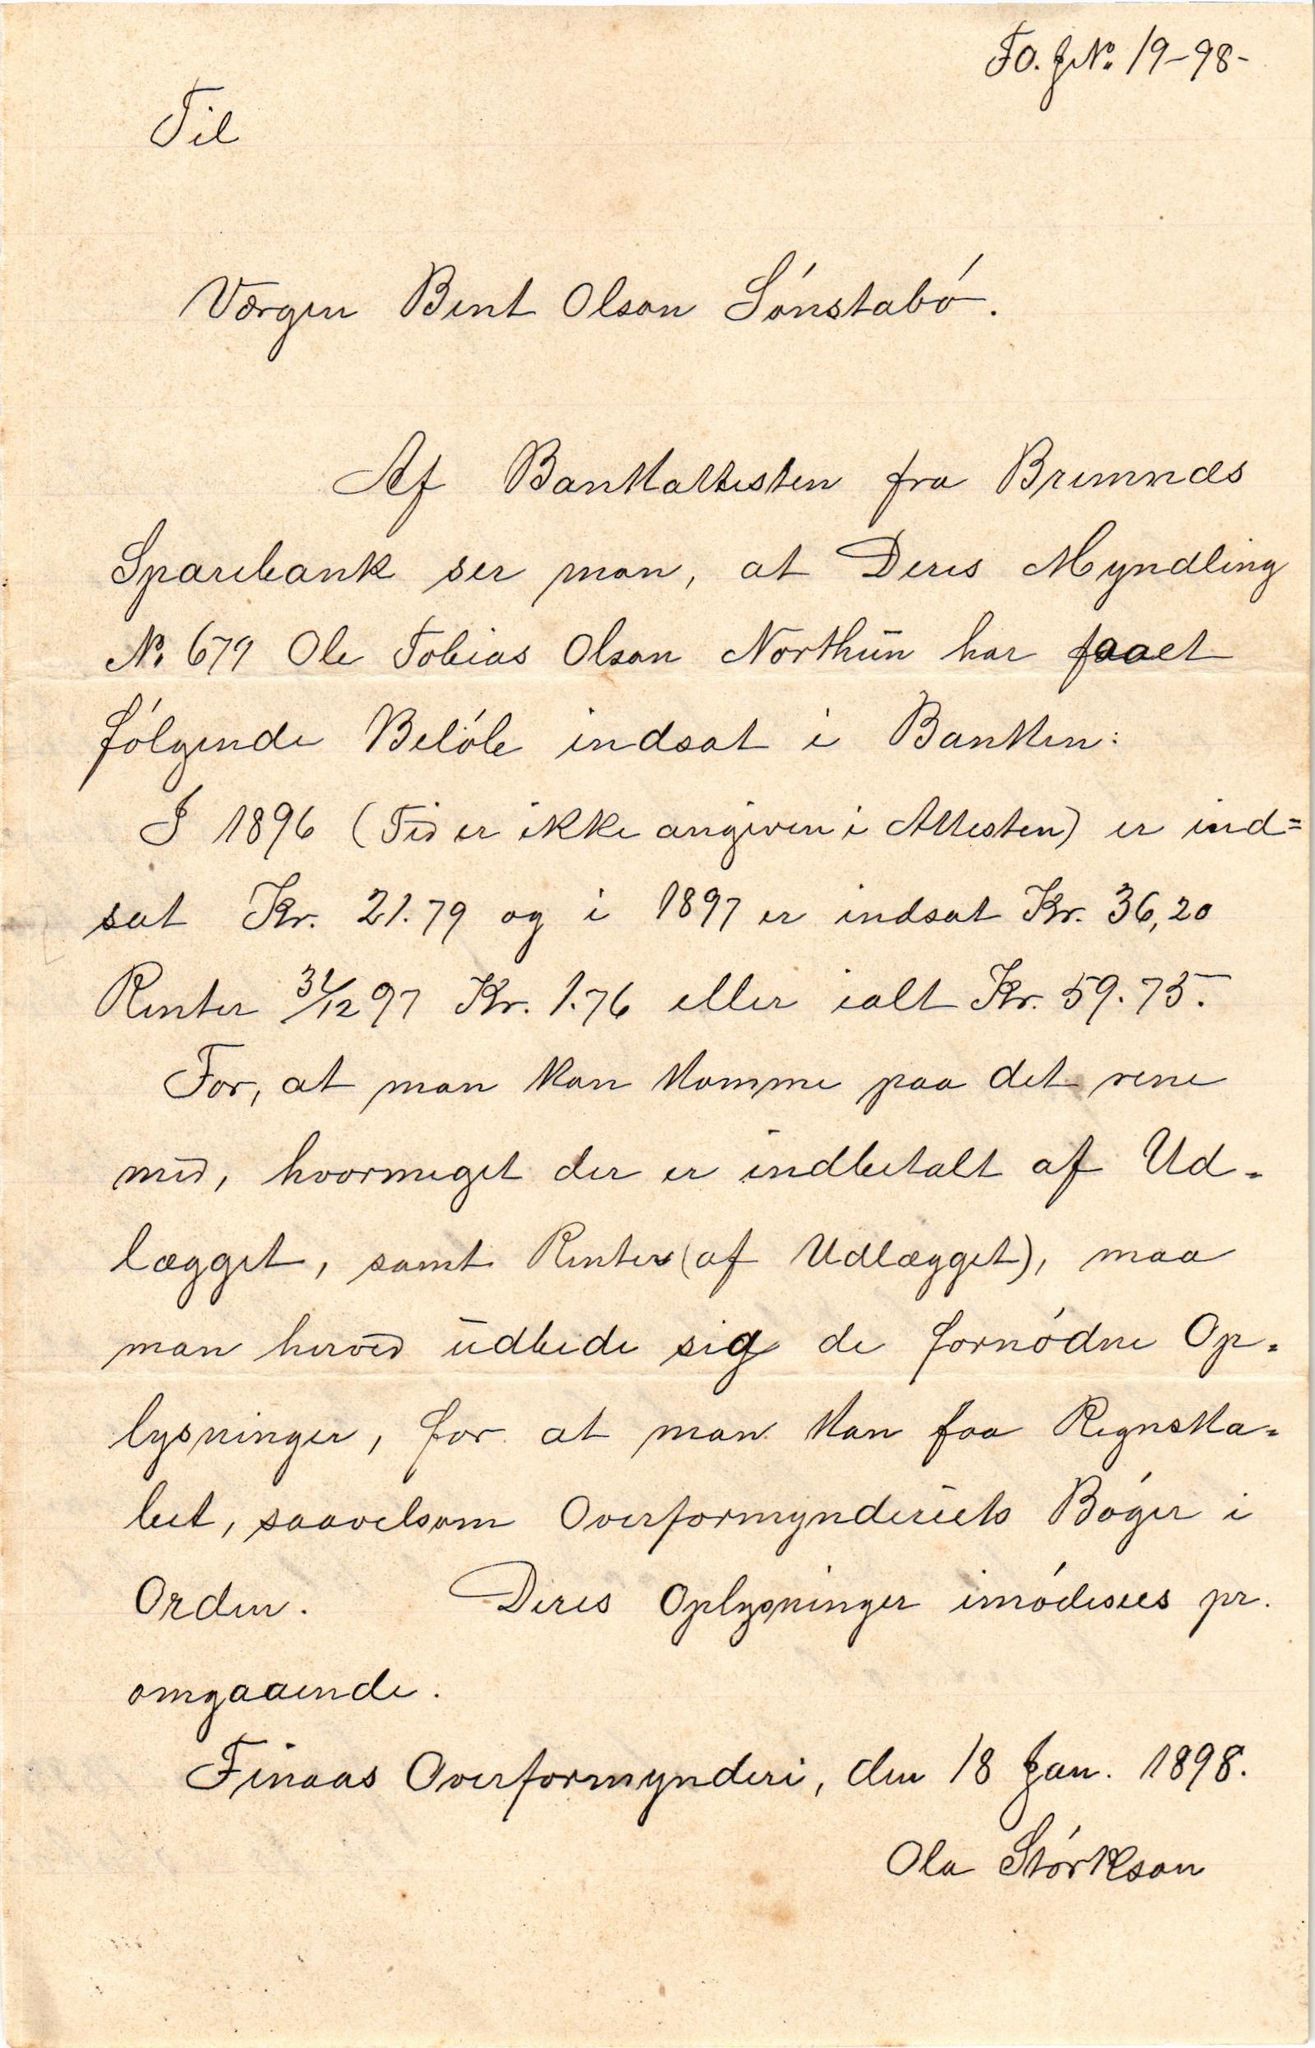 FO. J.No. 19-98-
Til
Værgen Bent Olson Sónstabó.
Af Bankattesten fra Bremnæs
Sparebank ser man, at Deres Myndling
No. 679 Ole Tobias Olson Northūn har faaet
fólgende Belób indsat i Banken:
I 1896 (Tid er ikke angiven i Attesten) er ind=
sat Kr. 21.79 og i 1897 er indsat Kr. 36,20
Renter 31/12 97 Kr. 1.76 eller ialt Kr. 59.75.
For, at man kan komme paa det rene
med, hvormeget der er indbetalt af Ud-
lægget, samt Renter (af Udlægget), maa
man herved ūdbede sig de fornódne Op-
lysninger, for at man kan faa Regnska-
bet, saavelsom Overformynderiets Bóger i
Orden. Deres Oplysninger imódesees pr.
omgaaende.
Finaas Overformynderi, den 18 Jan. 1898.
Ola Stórkson